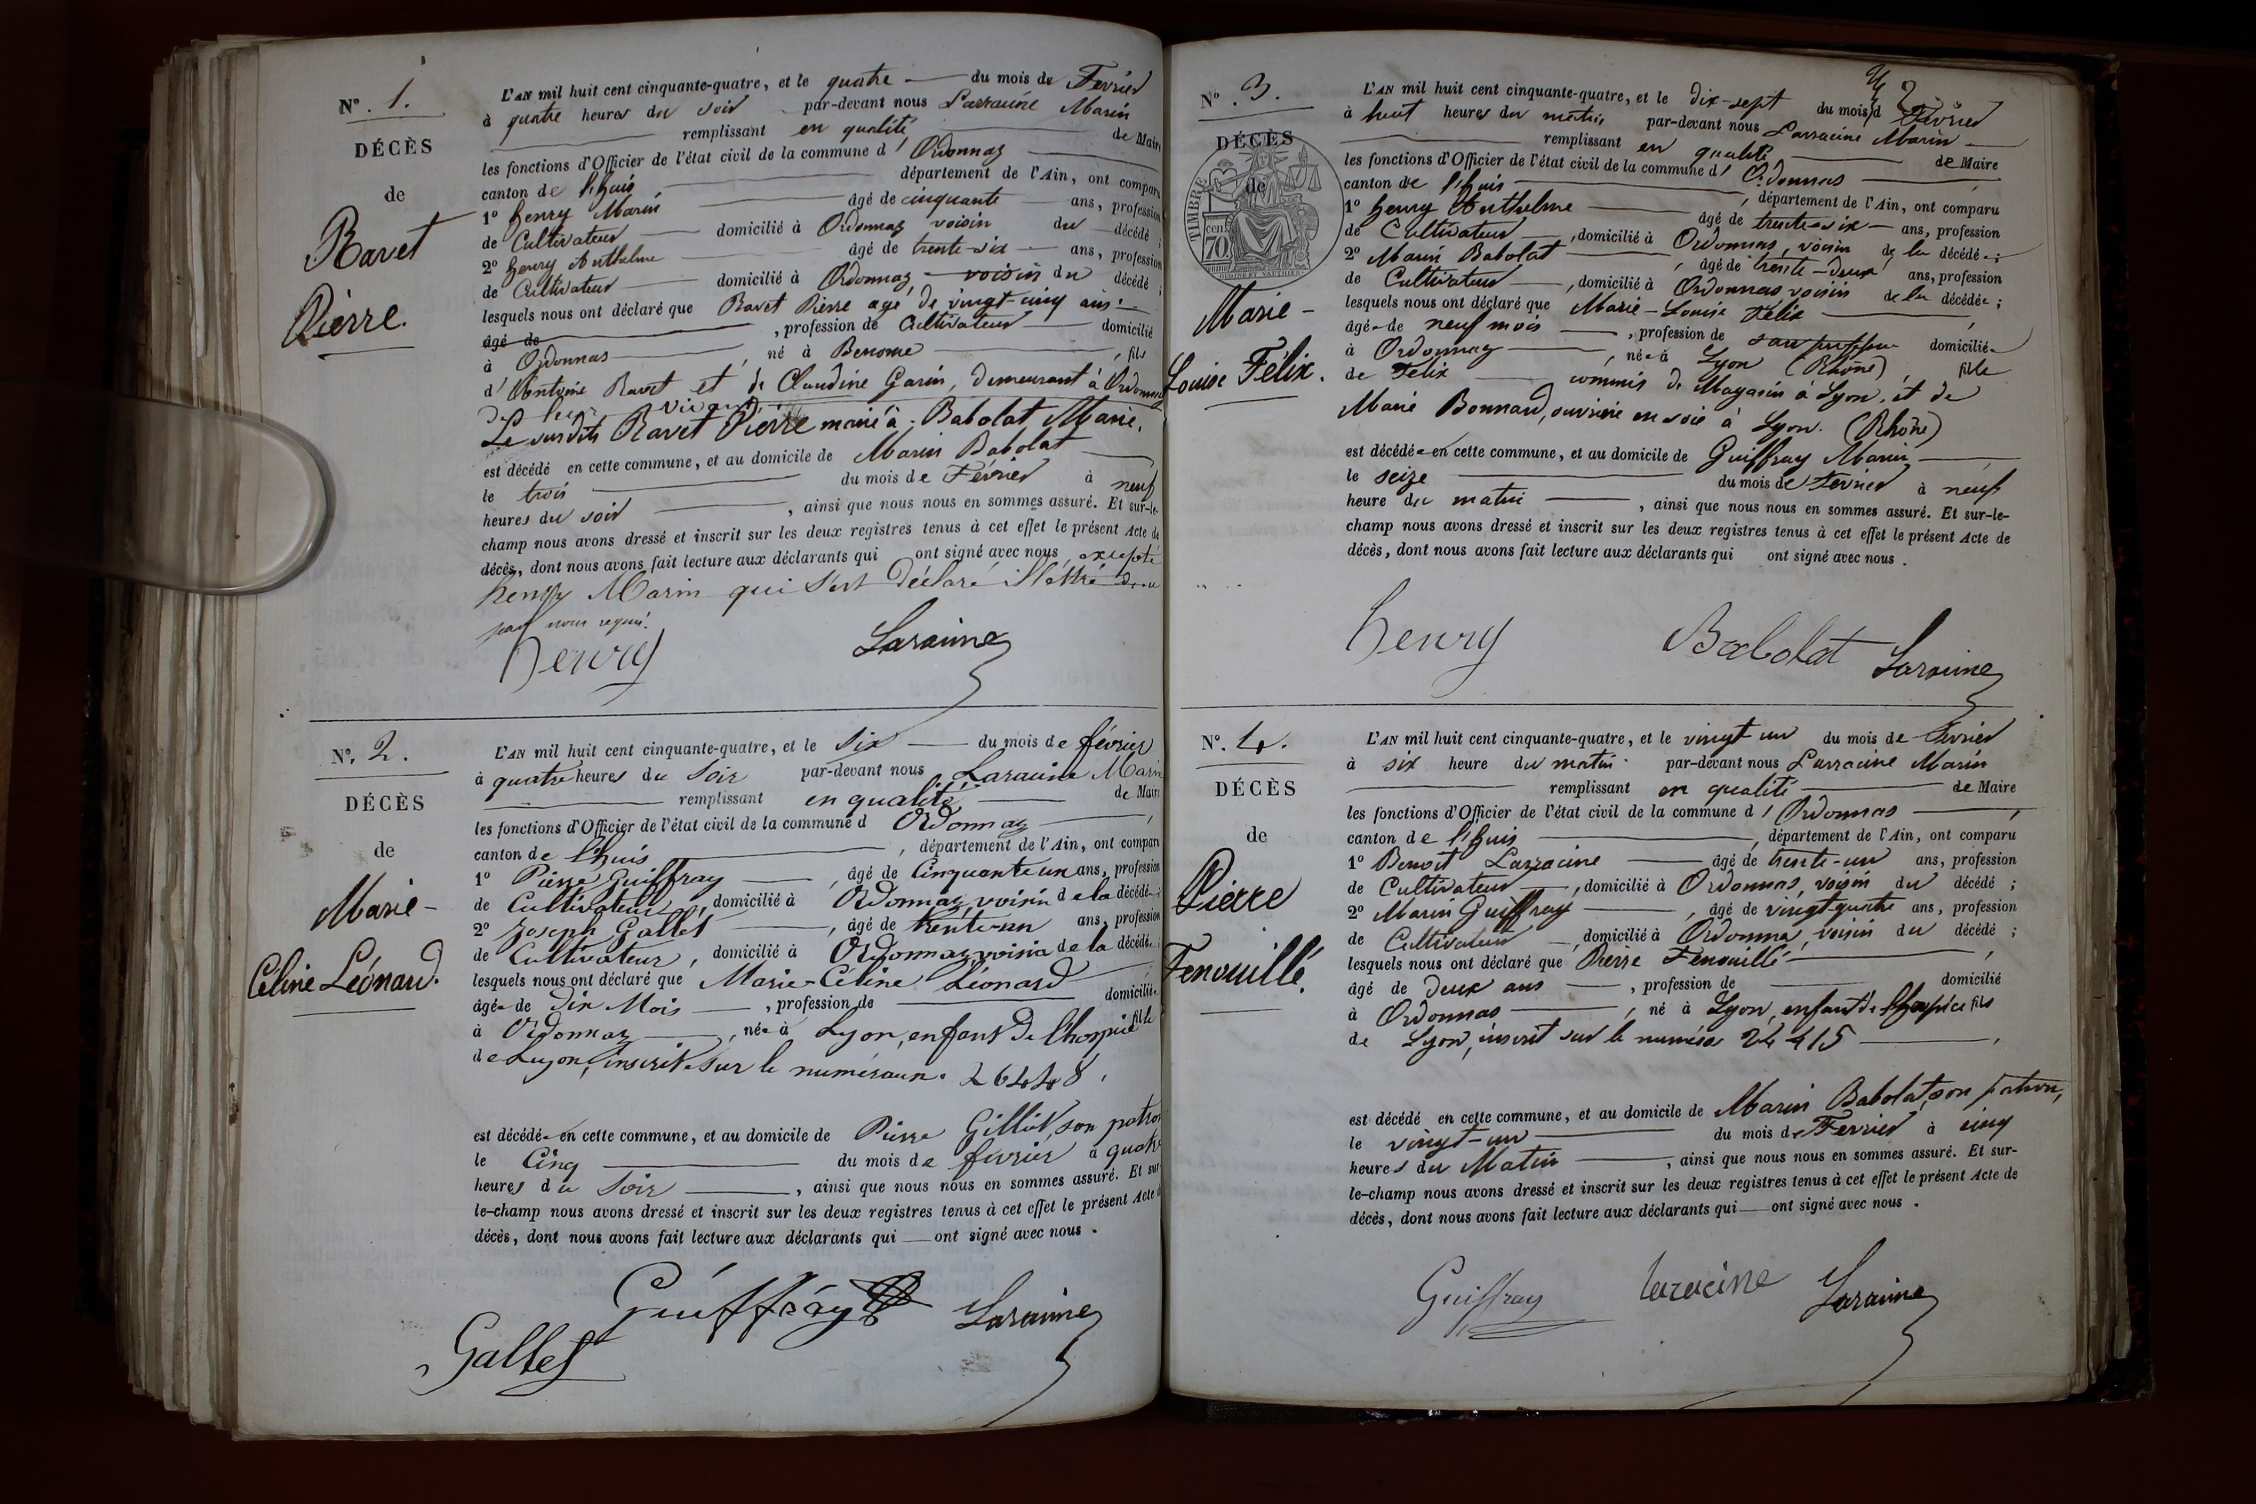 N° . 1 .
DÉCÈS
de
Ravet
Pierre.
L'AN mil huit cent cinquante-quatre, et le quatre du mois de Fevrier
à quatre heures du soir par-devant nous Larracine Marin
remplissant en qualité de Maire
les fonctions d'Officier de l'état civil de la commune d' Ordonnaz
canton de l'huis département de l'Ain, ont comparu
1° henry Marin âgé de cinquante ans, profession
de Cultivateur domicilié à Ordonnaz voisin du décédé ;
2° henry Anthelme âgé de trente-six ans, profession
de Cultivateur domicilié à Ordonnaz voisin du décédé ;
lesquels nous ont déclaré que Ravet Pierre agé de vingt-cinq ans
âgé de , profession de Cultivateur domicilié
à Ordonnas , né à Benonce , fils
d'Antoine Ravet et de Claudine Garin, demeurant à Ordonnaz
Le susdit Ravet Pierre marié à Babolat Marie.
est décédé en cette commune, et au domicile de Marin Babolat
le trois du mois de Février à neuf
heures du soir , ainsi que nous nous en sommes assuré. Et sur-le-
champ nous avons dressé et inscrit sur les deux registres tenus à cet effet le présent Acte de
décès, dont nous avons fait lecture aux déclarants qui ont signé avec nous excepté
henry Marin qui s'est déclaré illétré de ce
par nous requis.
henry Laracine
N°. 2 .
DÉCÈS
de
Marie-
Céline Léonard.
L'AN mil huit cent cinquante-quatre, et le six du mois de février
à quatre heures du Soir par-devant nous Laracine Marin
remplissant en qualité de Maire
les fonctions d'Officier de l'état civil de la commune d Ordonnaz ,
canton de l'huis , département de l'Ain, ont comparu
1° Pierre Guiffray , âgé de Cinquante un ans, profession
de Cultivateur , domicilié à Ordonnaz voisin de la décédée ;
2° Joseph Gallet , âgé de trente-un ans, profession
de Cultivateur , domicilié à Ordonnaz voisin de la décédée ;
lesquels nous ont déclaré que Marie-Céline Léonard
âgée de dix Mois , profession de domiciliée
à Ordonnaz , née à Lyon, enfant de l'hospice fille
de Lyon, inscrite sur le numéraun. 26448 ,
est décédée en cette commune, et au domicile de Pierre Gilliot, son patron
le Cinq du mois de février à quatre
heures du Soir , ainsi que nous nous en sommes assuré. Et sur-
le-champ nous avons dressé et inscrit sur les deux registres tenus à cet effet le présent Acte de
décès, dont nous avons fait lecture aux déclarants qui ont signé avec nous .
Guiffray Laracine
Gallet
N° . 3 .
DÉCÈS
de
TIMBRE
70.
Marie-
Louise Félix.
L'AN mil huit cent cinquante-quatre, et le dix-sept du mois d Février
à huit heures du matin par-devant nous Larracine Marin
remplissant en qualité de Maire
les fonctions d'Officier de l'état civil de la commune d' Ordonnas
canton de l'huis , département de l'Ain, ont comparu
1° henry Anthelme âgé de trente-six ans, profession
de Cultivateur , domicilié à Ordonnas, voisin de la décédée ;
2° Marin Babolat , âgé de trente-deux ans, profession
de Cultivateur , domicilié à Ordonnas voisin de la décédée ;
lesquels nous ont déclaré que Marie-Louise Félix ,
âgée de neuf mois , profession de sans profession domiciliée
à Ordonnaz , née à Lyon (Rhône) , fille
de Félix commis de Magasin à Lyon, et de
Marie Bonnard, ouvrière en soie à Lyon. (Rhône)
est décédée en cette commune, et au domicile de Guiffray Marin ,
le seize du mois de Février à neuf
heure du matin , ainsi que nous nous en sommes assuré. Et sur-le-
champ nous avons dressé et inscrit sur les deux registres tenus à cet effet le présent Acte de
décès, dont nous avons fait lecture aux déclarants qui ont signé avec nous .
henry Babolat Laracine
N°. 4 .
DÉCÈS
de
Pierre
Fenouillé.
L'AN mil huit cent cinquante-quatre, et le vingt-un du mois de Février
à six heure du matin par-devant nous Larracine Marin
remplissant en qualité de Maire
les fonctions d'Officier de l'état civil de la commune d' Ordonnas ,
canton de l'huis , département de l'Ain, ont comparu
1° Benoit Larracine âgé de trente-un ans, profession
de Cultivateur , domicilié à Ordonnas, voisin du décédé ;
2° Marin Guiffray , âgé de vingt-quatre ans, profession
de Cultivateur , domicilié à Ordonnas, voisin du décédé ;
lesquels nous ont déclaré que Pierre Fenouillé ,
âgé de deux ans , profession de domicilié
à Ordonnas , né à Lyon, enfant de l'hospice fils
de Lyon, inscrit sur le numéro 24 415 ,
est décédé en cette commune, et au domicile de Marin Babolat, son patron,
le vingt-un du mois de Février à cinq
heures du Matin , ainsi que nous nous en sommes assuré. Et sur-
le-champ nous avons dressé et inscrit sur les deux registres tenus à cet effet le présent Acte de
décès, dont nous avons fait lecture aux déclarants qui ont signé avec nous .
Guiffray laracine Laracine